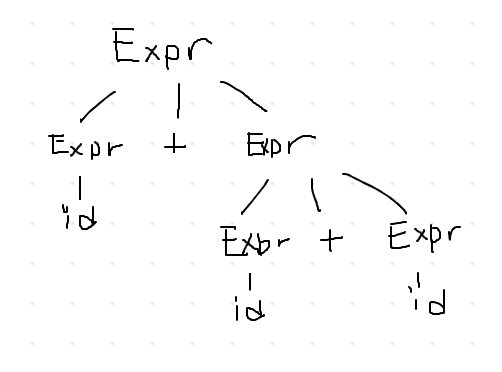 Expr
Expr + Expr
id
Expr + Expr
id id